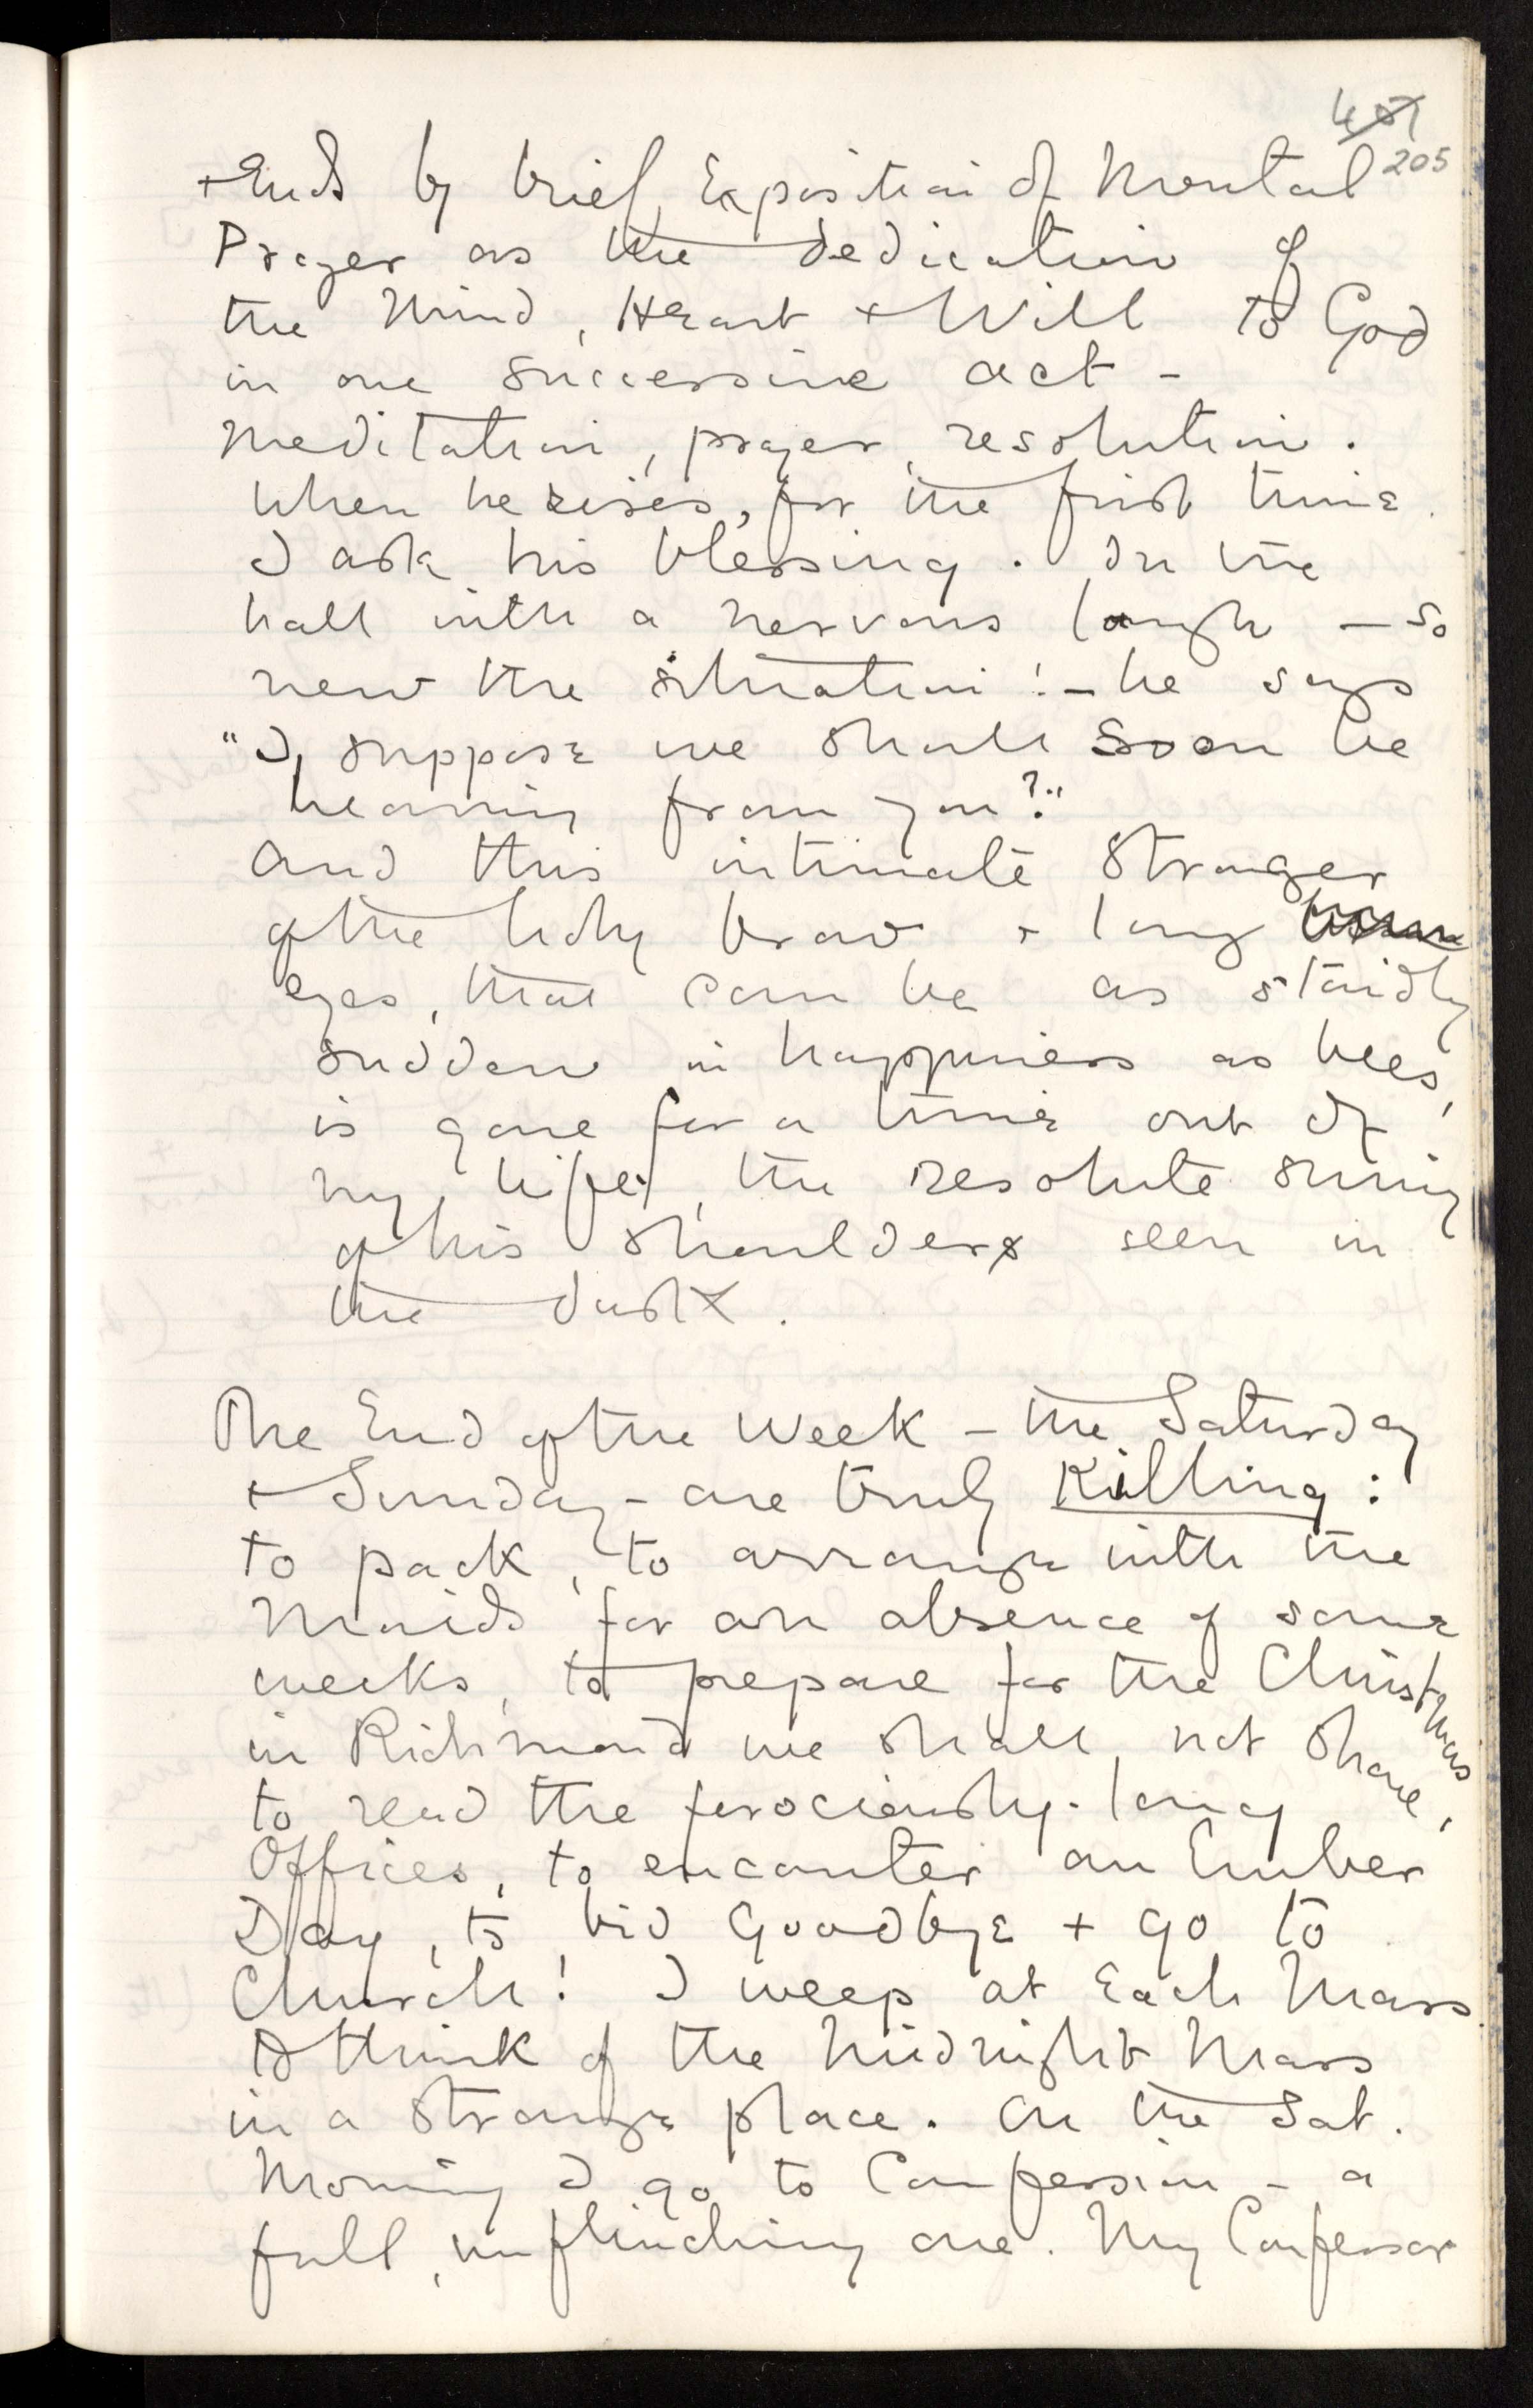 451
205
+ Ends by brief Exposition of Mental
Prayer as the dedication of
the Mind, Heart + Will to God
in one successive act –
meditation, prayer, resolution.
When he rises, for the first time
I ask his blessing. In the
hall with a nervous laugh – so
new the situation! – he says
"I suppose we shall soon be
hearing from you?"
And this intimate stranger
of the holy brow + long
eyes, that can be as staidly
sudden in happiness as bees,
is gone for a time out of
my life, the resolute swing
of his shoulders seen in
the dusk.
The End of the Week – the Saturday
+ Sunday – are truly Killing:
to pack, to arrange with the
Maids for an absence of some
weeks, to prepare for the Christmas
in Richmond we shall not share,
to read the ferociously-long
Offices, to encounter an Ember
Day, to bid Goodbye + go to
Church! I weep at Each Mass
to think of the Midnight Mass
in a strange place. On the Sat.
Morning I go to Confession – a
full, unflinching one. My Confessor